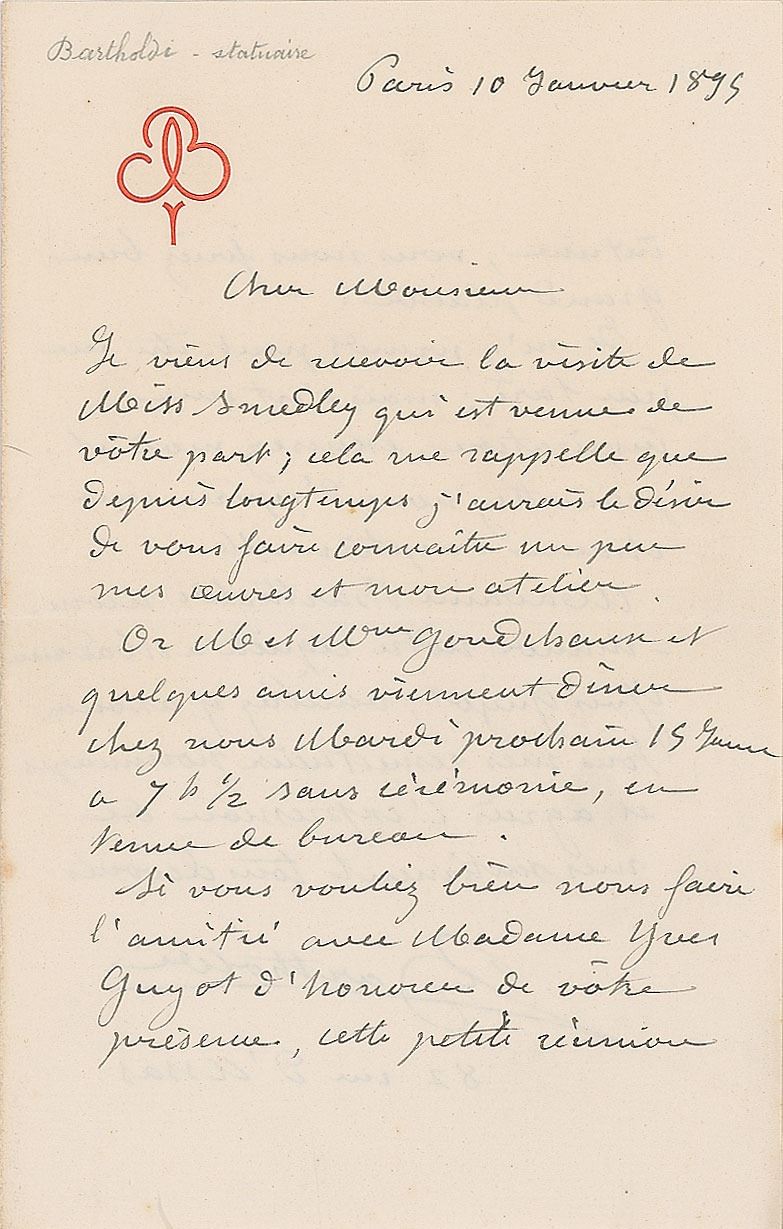 Bartholdi - statuaire
Paris 10 Janvier 1895
Cher Monsieur
Je viens de recevoir la visite de
Miss Smedley qui est venue de
vôtre part ; cela me rappelle que
depuis longtemps j'aurais le désir
de vous faire connaître un peu
mes œuvres et mon atelier.
Or M et Mme Goudchaux et
quelques amis viennent dîner
chez nous Mardi prochain 15 Janvier
a 7 h 1/2 sans cérémonie, en
tenue de bureau.
Si vous vouliez bien nous faire
l'amitié avec Madame Yves
Guyot d'honorer de vôtre
présence, cette petite réunion